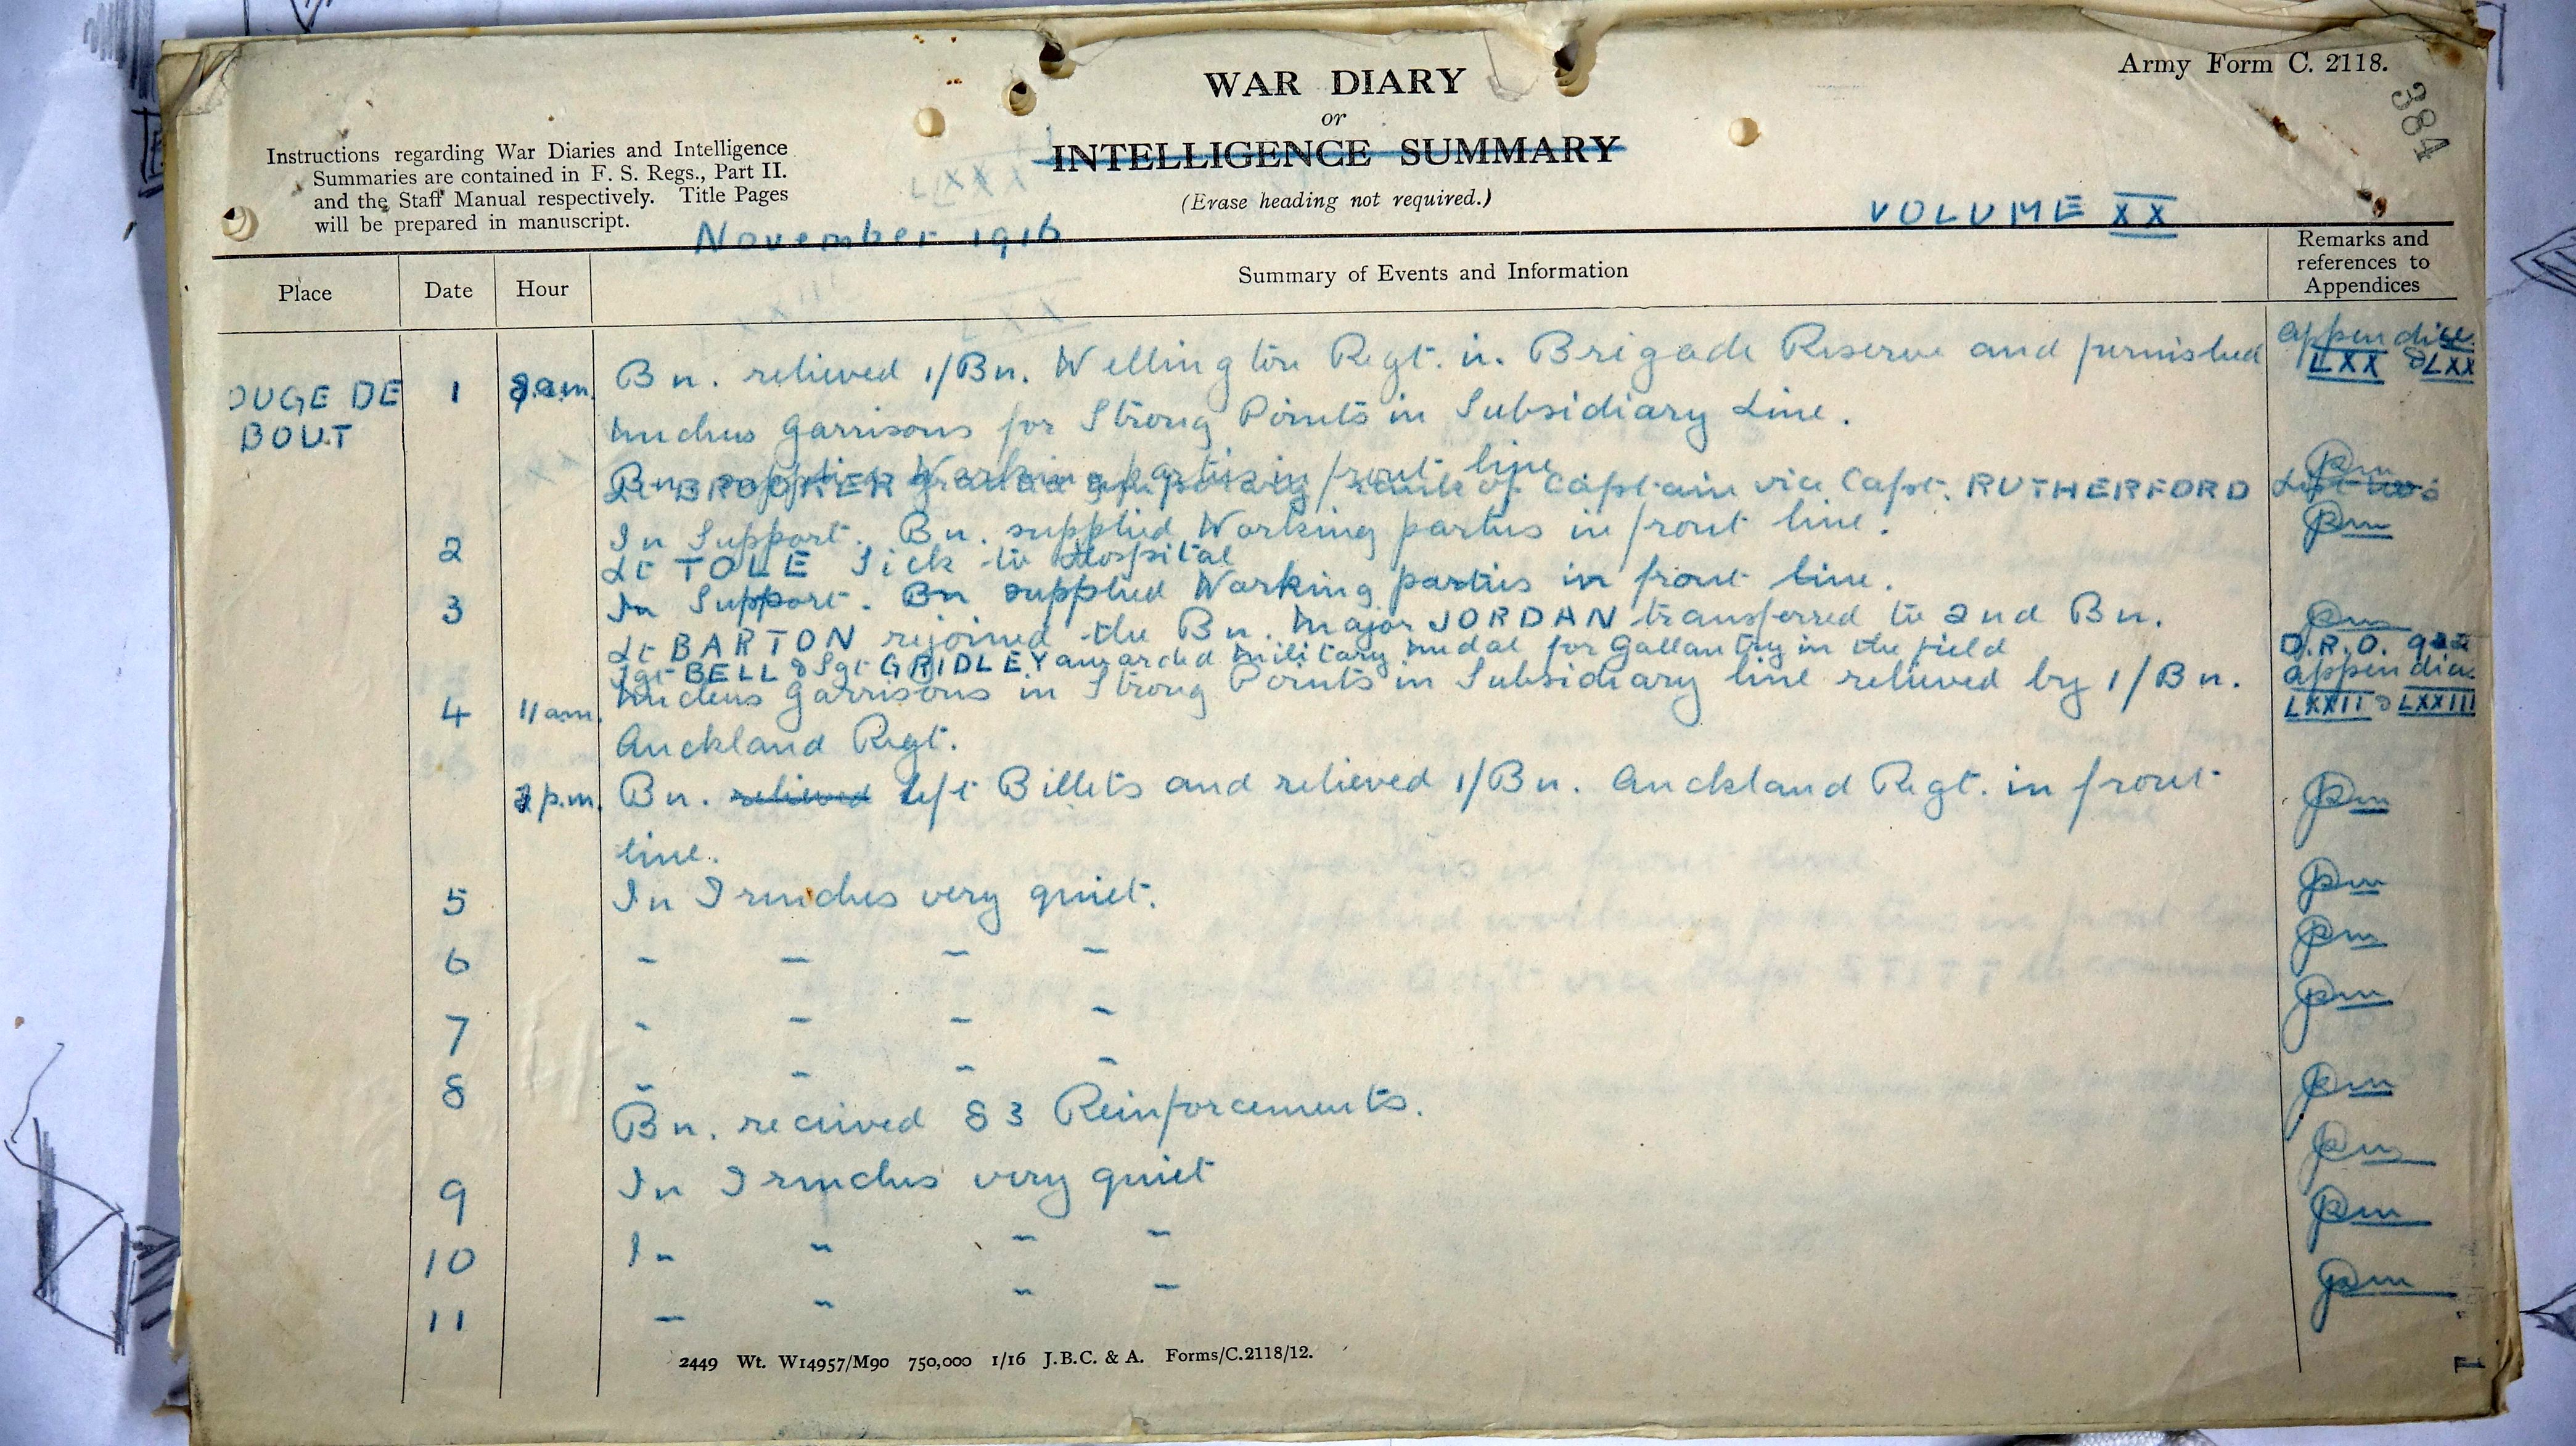 Army Form C. 2118.
384
WAR DIARY
or
INTELLIGENCE SUMMARY
(Erase heading not required.)
Instructions regarding War Diaries and Intelligence
Summaries are contained in F. S. Regs., Part II.
and the Staff Manual respectively. Title Pages
will be prepared in manuscript.
November 1916
VOLUME XX
Place Date Hour Summary of Events and Information Remarks and
references to
Appendices
OUGE DE 1 am. Bn. relieved 1/Bn. Wellington Regt. in Brigade Reserve and furnished
BOUT
LXX & LXX
nucleus garrisons for Strong Points in Subsidiary Line.
Bn. supplied Working parties in front line
Lt BROOKER temporary rank of Captain vice Capt. RUTHERFORD
2 In Support. Bn. supplied Working parties in front line.
Lt TOLE Sick to Hospital
3 In Support. Bn supplied Working parties in front line.
Lt BARTON rejoined the Bn. Major JORDAN transferred to 2nd Bn.
Sgt BELL & Sgt GRIDLEY awarded Military medal for Gallantry in the Field D.R.O.
4 11 am. Nucleus garrisons in Strong Points in Subsidiary line relieved by 1/Bn. appendix
LXXII & LXXIII
Auckland Regt.
p.m. Bn. relieved left Billets and relieved 1/Bn. Auckland Regt. in front
line.
5 In Trenches very quiet.
6 " " " "
7 " " " "
8 " " " "
Bn. received 83 Reinforcements.
9 In Trenches very quiet
10 In " " "
11 " " " "
2449 Wt. W14957/M90 750,000 1/16 J.B.C. & A. Forms/C.2118/12.